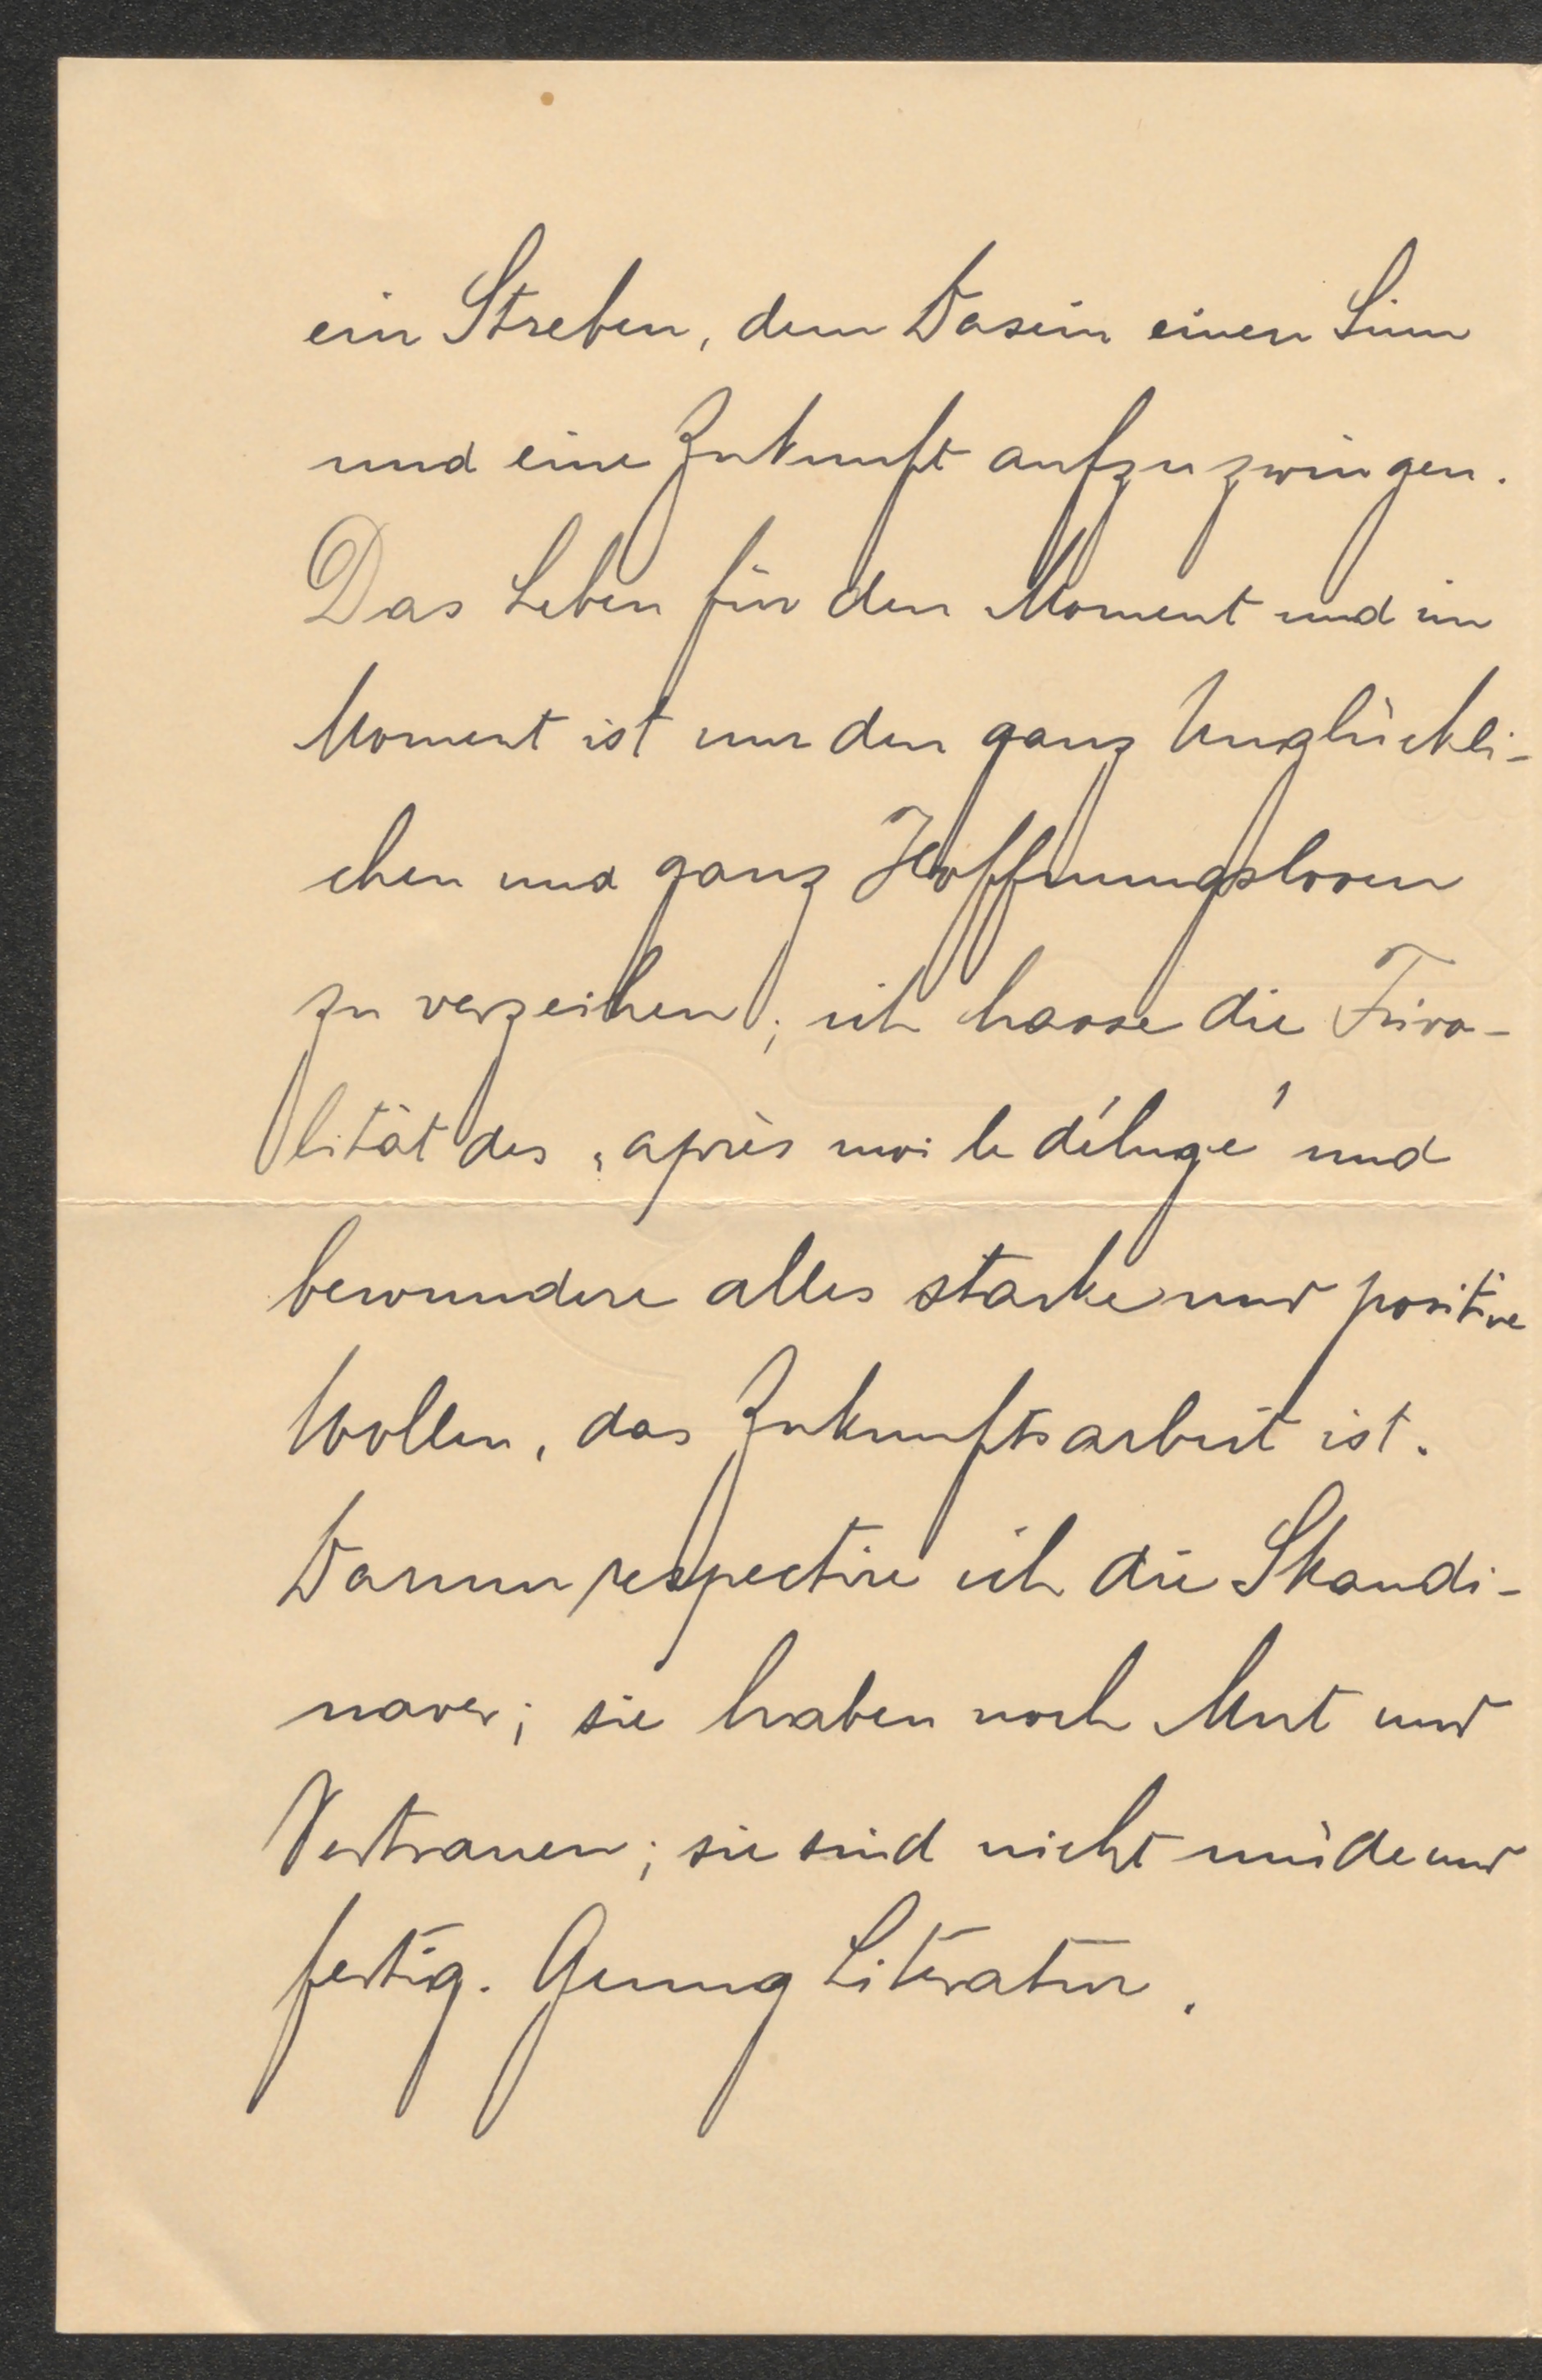 ein Streben, dem Dasein einen Sinn
und eine Zukunft aufzuzwingen.
Das Leben für den Moment und im
Moment ist nur den ganz Unglückli-
chen und ganz Hoffnungslosen
zu verzeihen; ich hasse die Frivo-
lität des „après moi le déluge" und
bewundere alles starke und positive
Wollen, das Zukunftsarbeit ist.
Darum respectire ich die Skandi-
naver; sie haben noch Mut und
Vertrauen; sie sind nicht müde und
fertig. Genug Literatur.